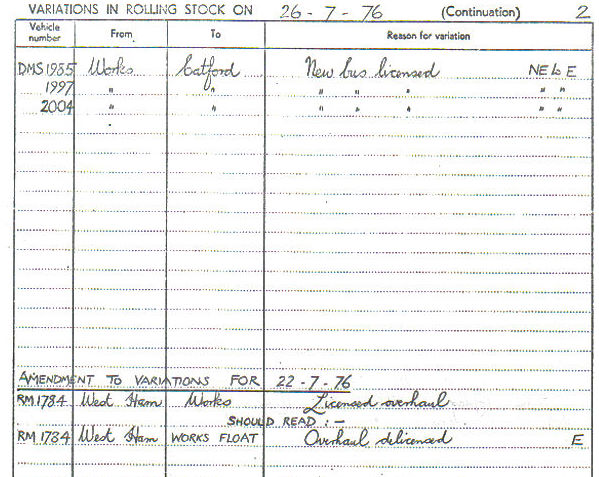 VARIATIONS IN ROLLING STOCK ON 26-7-76 (Continuation) 2
Vehicle number From To Reason for variation
DMS 1985 Works Catford New bus licensed NE to E
1997 " " " " " " "
2004 " " " " " " "
AMENDMENT TO VARIATIONS FOR 22-7-76
RM 1784 West Ham Works Licensed overhaul
SHOULD READ :-
RM 1784 West Ham WORKS FLOAT Overhaul delicensed E